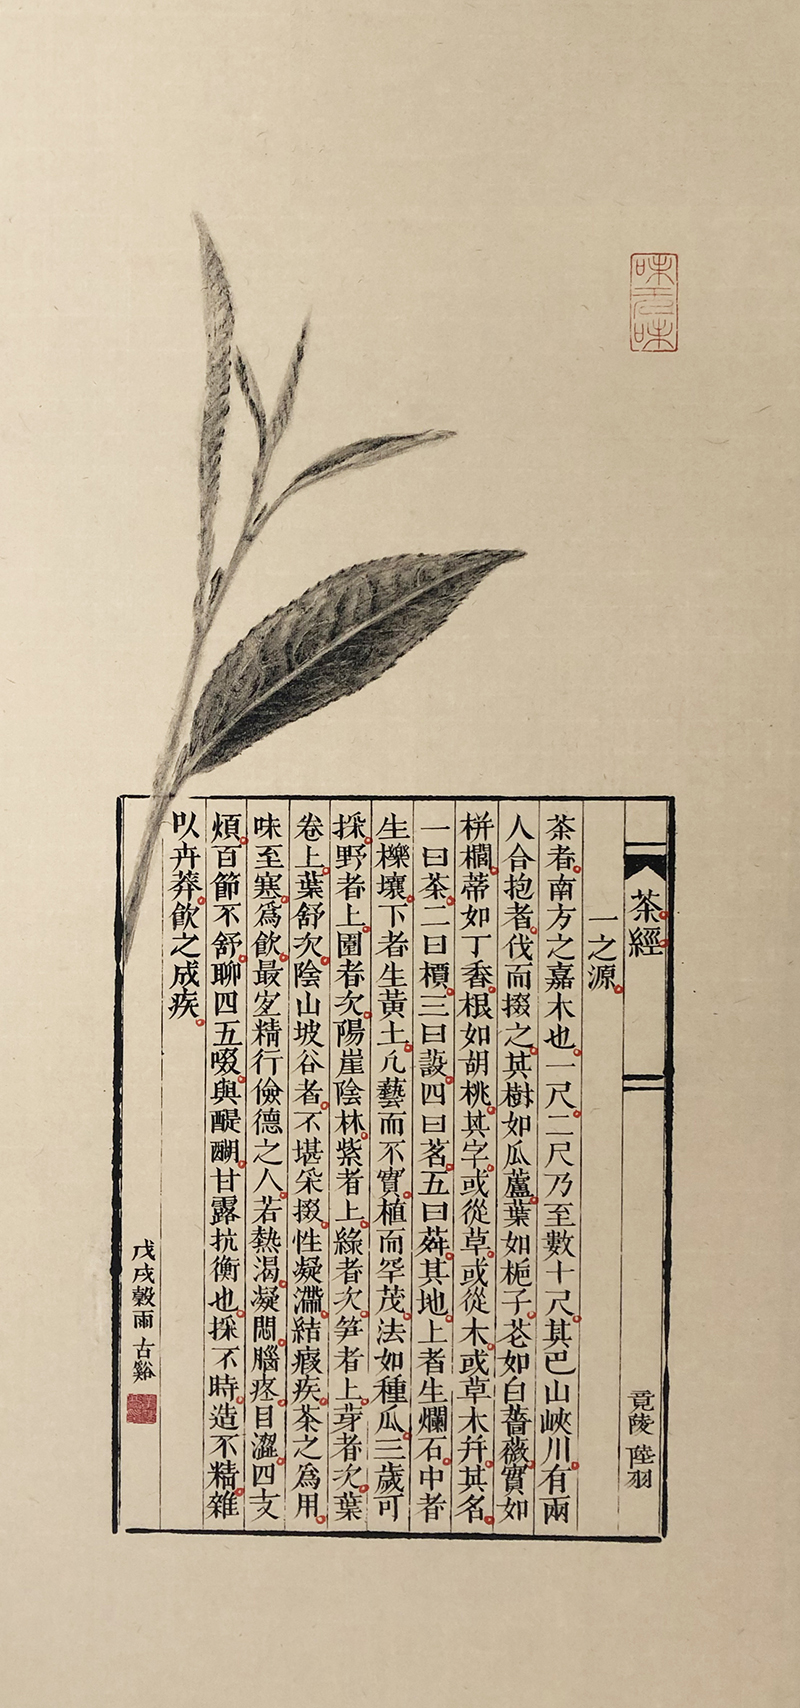 味無味
茶經
竟陵 陸羽
一之源
茶者南方之嘉木也一尺二尺乃至數十尺其巴山峽川有兩
人合抱者伐而掇之其樹如瓜蘆葉如梔子花如白薔薇實如
栟櫚蒂如丁香根如胡桃其字或從草或從木或草木幷其名
一曰茶二曰檟三曰蔎四曰茗五曰荈其地上者生爛石中者
生櫟壤下者生黃土凡藝而不實植而罕茂法如種瓜三歲可
採野者上園者次陽崖陰林紫者上綠者次笋者上芽者次葉
卷上葉舒次陰山坡谷者不堪采掇性凝滯結瘕疾茶之爲用
味至寒爲飲最宐精行儉德之人若熱渴凝悶腦疼目澀四支
煩百節不舒聊四五啜與醍醐甘露抗衡也採不時造不精雜
以卉莽飲之成疾
戊戌穀雨 古谿